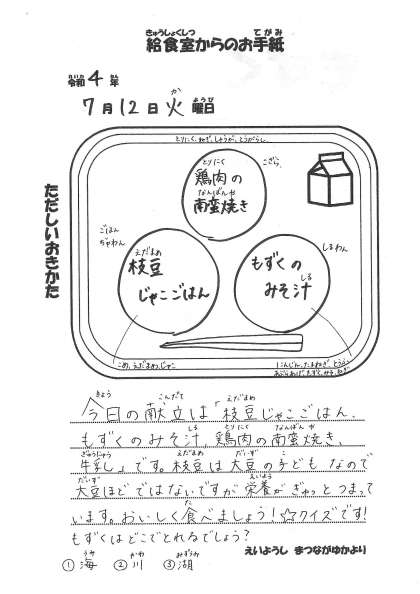 きゅうしょくしつ てがみ
給食室からのお手紙
れいわ ねん
令和 4 年
か ようび
7月12日 火 曜日
とりにく、ねぎ、しょうが、とうがらし
ただしいおきかた
とりにく
鶏肉の
なんばんや
南蛮焼き
こざら
ごはん
ちゃわん
えだまめ
枝豆
じゃこごはん
もずくの
しる
みそ汁
しるわん
こめ、えだまめ、じゃこ
にんじん、たまねぎ、とうふ
あぶらあげ、もずく、みそ、ねぎ
きょう こんだて えだまめ
今日の献立は「枝豆じゃこごはん、
しる とりにく なんばんや
もずくのみそ汁、鶏肉の南蛮焼き、
ぎゅうにゅう えだまめ だいず こ
牛乳」です。枝豆は大豆の子どもなので
だいず えいよう
大豆ほどではないですが栄養がぎゅっとつまって
た
います。おいしく食べましょう!☆クイズです!
もずくはどこでとれるでしょう?
えいようし まつながゆかより
うみ かわ みずうみ
①海 ②川 ③湖